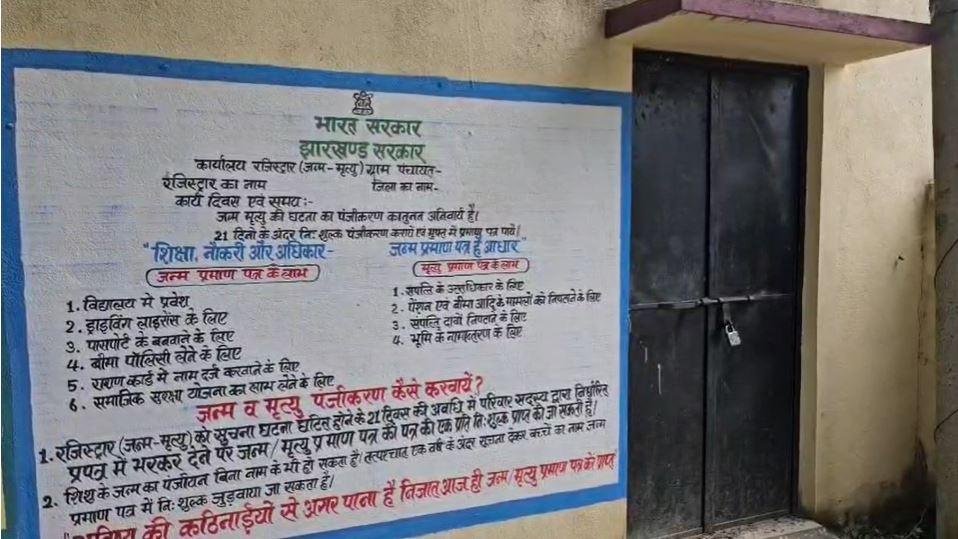 भारत सरकार
झारखण्ड सरकार
कार्यालय रजिस्ट्रार (जन्म-मृत्यु) ग्राम पंचायत-
रजिस्ट्रार का नाम जिला का नाम-
कार्य दिवस एवं समय:-
जन्म मृत्यु की घटना का पंजीकरण कानूनन अनिवार्य है।
21 दिनो के अंदर नि:शुल्क पंजीकरण करायें एवं मुफ्त में प्रमाण पत्र पायें।
"शिक्षा, नौकरी और अधिकार- जन्म प्रमाण पत्र है आधार"
जन्म प्रमाण पत्र के लाभ
1. विद्यालय में प्रवेश
2. ड्राइविंग लाइसेंस के लिए
3. पासपोर्ट के बनवाने के लिए
4. बीमा पॉलिसी लेने के लिए
5. राशन कार्ड में नाम दर्ज करवाने के लिए
6. समाजिक सुरक्षा योजना का लाभ लेने के लिए
मृत्यु प्रमाण पत्र के लाभ
1. संपत्ति के उत्तराधिकार के लिए
2. पेंशन एवं बीमा आदि के मामलों को निपटाने के लिए
3. संपत्ति दावों निपटाने के लिए
4. भूमि के नामान्तरण के लिए
जन्म व मृत्यु पंजीकरण कैसे करवायें?
1. रजिस्ट्रार (जन्म-मृत्यु) को सुचना घटना घटित होने के 21 दिवस की अवधि में परिवार सदस्य द्वारा निर्धारित
प्रपत्र में भरकर देने पर जन्म/मृत्यु प्रमाण पत्र की पत्र की एक प्रति नि:शुल्क प्राप्त की जा सकती है।
2. शिशु के जन्म का पंजीयन बिना नाम के भी हो सकता है। तत्पश्चात् एक वर्ष के अंदर सूचना देकर बच्चे का नाम जन्म
प्रमाण पत्र में नि:शुल्क जुड़वाया जा सकता है।
की कठिनाईयो से अगर पाना है निजात आज ही जन्म/मृत्यु प्रमाण पत्र को प्राप्त